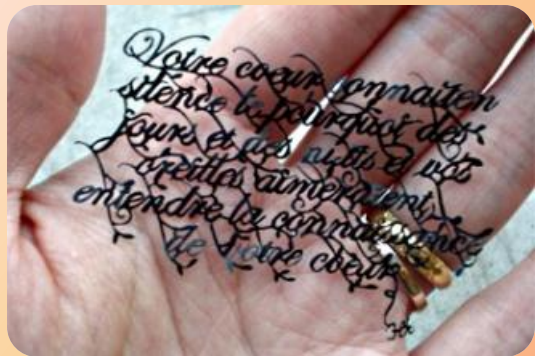 Votre coeur connait en
silence le pourquoi des
jours et des nuits et vos
oreilles aimeraient
entendre la connaissance
de votre coeur